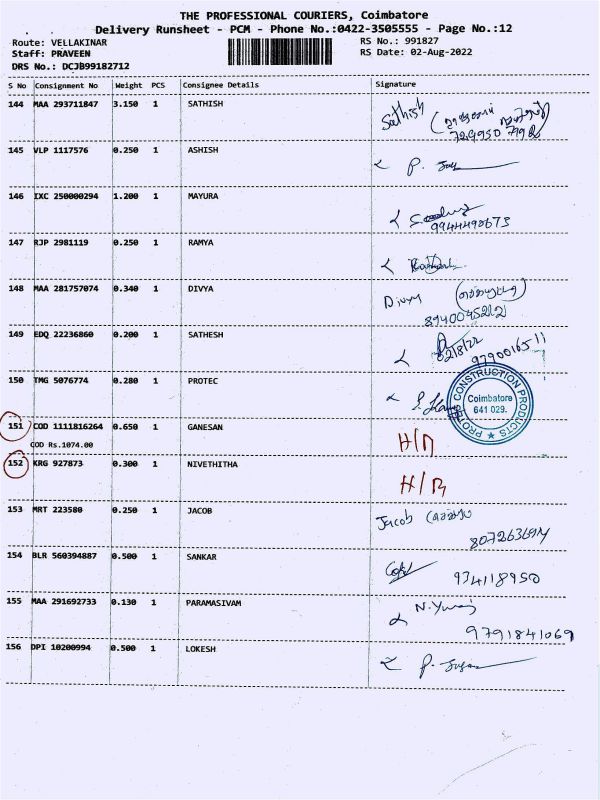 THE PROFESSIONAL COURIERS, Coimbatore
Delivery Runsheet - PCM - Phone No.:0422-3505555 - Page No.:12
Route: VELLAKINAR
RS No.: 991827
Staff: PRAVEEN
RS Date: 02-Aug-2022
DRS No.: DCJB99182712
S No Consignment No Weight PCS Consignee Details Signature
144 MAA 293711847 3.150 1 SATHISH Sathish
145 VLP 1117576 0.250 1 ASHISH
146 IXC 250000294 1.200 1 MAYURA
9944498673
147 RJP 2981119 0.250 1 RAMYA
148 MAA 281757074 0.340 1 DIVYA Divya
149 EDQ 22236860 0.200 1 SATHESH
02/8/22
9790016511
150 TMG 5076774 0.280 1 PROTEC
CONSTRUCTION PRODUCTS
Coimbatore
641 029.
151 COD 1111816264 0.650 1 GANESAN
COD Rs.1074.00
152 KRG 927873 0.300 1 NIVETHITHA
153 MRT 223580 0.250 1 JACOB Jacob
154 BLR 560394887 0.500 1 SANKAR
934118950
155 MAA 291692733 0.130 1 PARAMASIVAM
9791841069
156 DPI 10200994 0.500 1 LOKESH